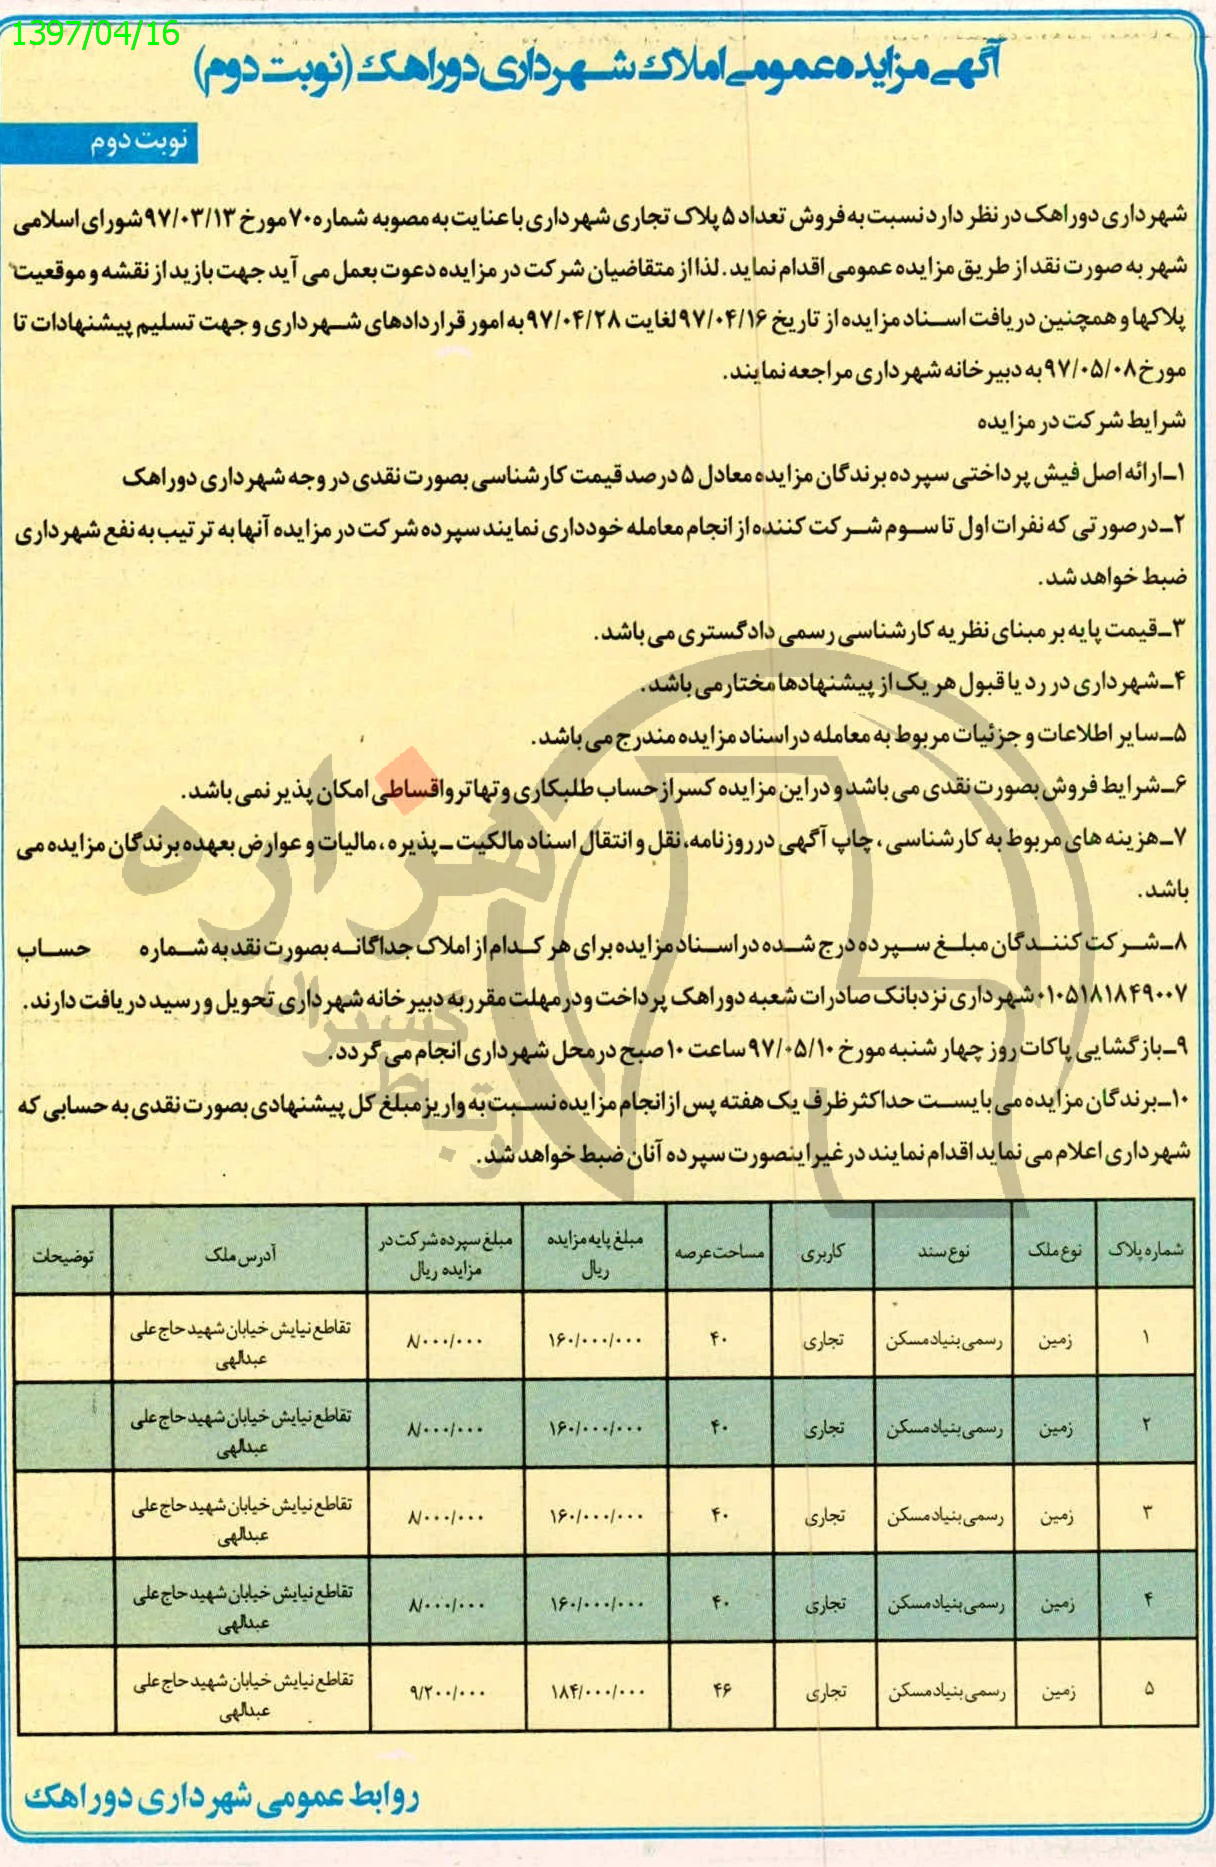 1397/04/16
آگهی مزایده عمومی املاک شهرداری دوراهک (نوبت دوم)
نوبت دوم
شهرداری دوراهک در نظر دارد نسبت به فروش تعداد ۵ پلاک تجاری شهرداری با عنایت به مصوبه شماره ۷۰ مورخ ۹۷/۰۳/۱۳ شورای اسلامی
شهر به صورت نقد از طریق مزایده عمومی اقدام نماید. لذا از متقاضیان شرکت در مزایده دعوت بعمل می آید جهت بازید از نقشه و موقعیت
پلاکها و همچنین دریافت اسناد مزایده از تاریخ ۹۷/۰۴/۱۶ لغایت ۹۷/۰۴/۲۸ به امور قراردادهای شهرداری و جهت تسلیم پیشنهادات تا
مورخ ۹۷/۰۵/۰۸ به دبیرخانه شهرداری مراجعه نمایند.
شرایط شرکت در مزایده
۱ـ ارائه اصل فیش پرداختی سپرده برندگان مزایده معادل ۵ درصد قیمت کارشناسی بصورت نقدی در وجه شهرداری دوراهک
۲ـ در صورتی که نفرات اول تا سوم شرکت کننده از انجام معامله خودداری نمایند سپرده شرکت در مزایده آنها به ترتیب به نفع شهرداری
ضبط خواهد شد.
۳ـ قیمت پایه بر مبنای نظریه کارشناسی رسمی دادگستری می باشد.
۴ـ شهرداری در رد یا قبول هر یک از پیشنهادها مختار می باشد.
۵ـ سایر اطلاعات و جزئیات مربوط به معامله در اسناد مزایده مندرج می باشد.
۶ـ شرایط فروش بصورت نقدی می باشد و در این مزایده کسر از حساب طلبکاری و تهاتر و اقساطی امکان پذیر نمی باشد.
۷ـ هزینه های مربوط به کارشناسی، چاپ آگهی در روزنامه، نقل و انتقال اسناد مالکیت ـ پذیره، مالیات و عوارض بعهده برندگان مزایده می
باشد.
۸ـ شرکت کنندگان مبلغ سپرده درج شده در اسناد مزایده برای هر کدام از املاک جداگانه بصورت نقد به شماره حساب
۰۱۰۵۱۸۱۸۴۹۰۰۷ شهرداری نزد بانک صادرات شعبه دوراهک پرداخت و در مهلت مقرر به دبیرخانه شهرداری تحویل و رسید دریافت دارند.
۹ـ بازگشایی پاکات روز چهارشنبه مورخ ۹۷/۰۵/۱۰ ساعت ۱۰ صبح در محل شهرداری انجام می گردد.
۱۰ـ برندگان مزایده می بایست حداکثر ظرف یک هفته پس از انجام مزایده نسبت به واریز مبلغ کل پیشنهادی بصورت نقدی به حسابی که
شهرداری اعلام می نماید اقدام نمایند در غیر اینصورت سپرده آنان ضبط خواهد شد.
شماره پلاک نوع ملک نوع سند کاربری مساحت عرصه مبلغ پایه مزایده ریال مبلغ سپرده شرکت در مزایده ریال آدرس ملک توضیحات
۱ زمین رسمی بنیاد مسکن تجاری ۴۰ ۱۶۰/۰۰۰/۰۰۰ ۸/۰۰۰/۰۰۰ تقاطع نیایش خیابان شهید حاج علی عبدالهی
۲ زمین رسمی بنیاد مسکن تجاری ۴۰ ۱۶۰/۰۰۰/۰۰۰ ۸/۰۰۰/۰۰۰ تقاطع نیایش خیابان شهید حاج علی عبدالهی
۳ زمین رسمی بنیاد مسکن تجاری ۴۰ ۱۶۰/۰۰۰/۰۰۰ ۸/۰۰۰/۰۰۰ تقاطع نیایش خیابان شهید حاج علی عبدالهی
۴ زمین رسمی بنیاد مسکن تجاری ۴۰ ۱۶۰/۰۰۰/۰۰۰ ۸/۰۰۰/۰۰۰ تقاطع نیایش خیابان شهید حاج علی عبدالهی
۵ زمین رسمی بنیاد مسکن تجاری ۴۶ ۱۸۴/۰۰۰/۰۰۰ ۹/۲۰۰/۰۰۰ تقاطع نیایش خیابان شهید حاج علی عبدالهی
روابط عمومی شهرداری دوراهک
هزاره